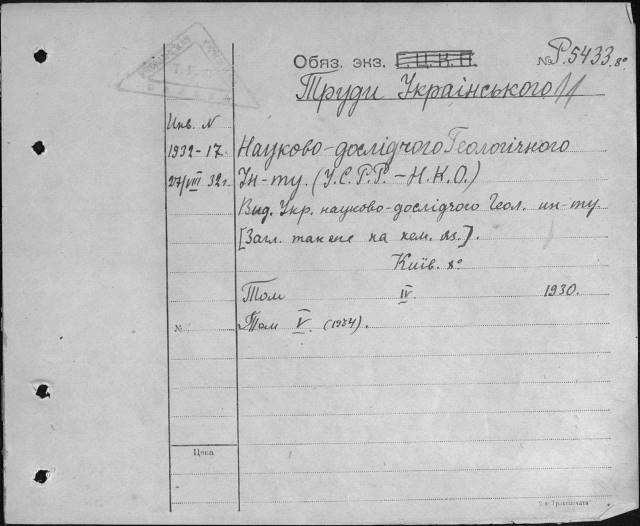 Обяз. экз. Г.Ц.К.П. № Р.5433. 8°
Труди Українського
Инв. N
1932-17. Науково-дослідчого Геологічного
27/VIII 32г. Ін-ту. (У.С.Р.Р. – Н.К.О.)
Вид. Укр. науково-дослідчого Геол. ин-ту
[Загл. также на нем. яз.].
Київ. 8°
Том IV 1930.
№ Том V. (1934).
Цена